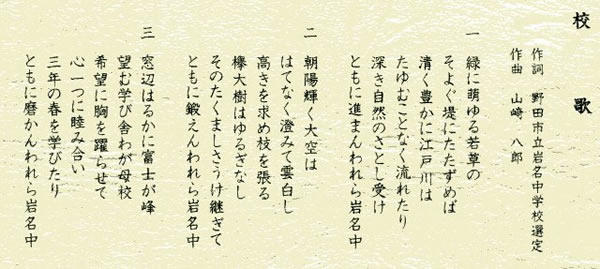 校歌
作詞 野田市立岩名中学校選定
作曲 山崎 八郎
一
緑に萌ゆる若草の
そよぐ堤にたたずめば
清く豊かに江戸川は
たゆむことなく流れたり
深き自然のさとし受け
ともに進まんわれら岩名中
二
朝陽輝く大空は
はてなく澄みて雲白し
高きを求め枝を張る
欅大樹はゆるぎなし
そのたくましさうけ継ぎて
ともに鍛えんわれら岩名中
三
窓辺はるかに富士が峰
望む学び舎わが母校
希望に胸を躍らせて
心一つに睦み合い
三年の春を学びたり
ともに磨かんわれら岩名中